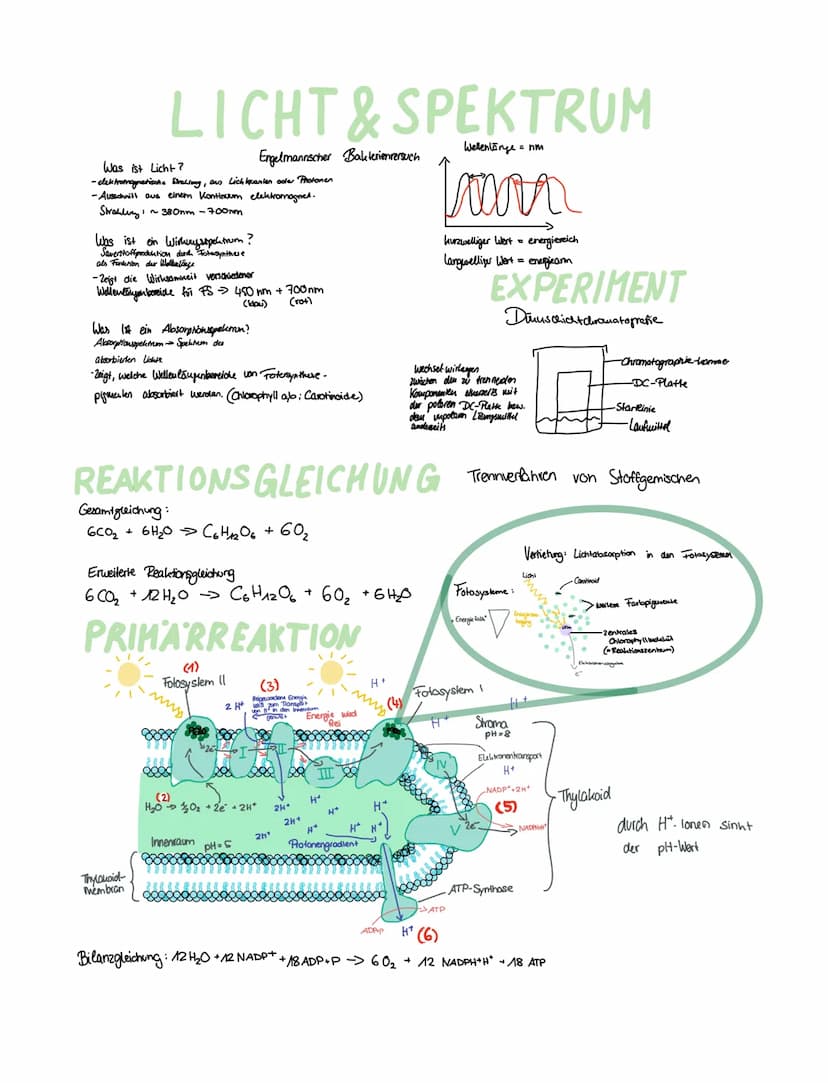 LICHT & SPEKTRUM
Was ist Licht?
- elektromagnetische Strahlung, aus Lichtquanten oder Photonen
- Ausschnitt aus einem Kontinuum elektromagnet.
Strahlung: ~ 380nm - 700nm
Was ist ein Wirkungsspektrum?
Sauerstoffproduktion durch Fotosynthese
als Funktion der Wellenlänge
- Zeigt die Wirksamkeit verschiedener
Wellenlängenbereiche für FS → 450 nm + 700nm
(blau) (rot)
Was ist ein Absorptionsspektrum?
Absorptionsspektrum → Spektrum des
absorbierten Lichts
- zeigt, welche Wellenlängenbereiche von Fotosynthese-
pigmenten absorbiert werden. (Chlorophyll a/b; Carotinoide)
Engelmannscher Bakterienversuch
Wellenlänge = nm
kurzwelliger Wert = energiereich
langwelliger Wert = energiearm
EXPERIMENT
Dünnschichtchromatografie
Wechselwirkungen
zwischen den zu trennenden
Komponenten einerseits mit
der polaren DC-Platte bzw.
dem unpolaren Lösungsmittel
anderseits
Chromatographie-kammer
DC-Platte
Startlinie
Laufmittel
Trennverfahren von Stoffgemischen
REAKTIONSGLEICHUNG
Gesamtgleichung:
6CO₂ + 6H₂O → C₆H₁₂O₆ + 6O₂
Erweiterte Reaktionsgleichung
6CO₂ + 12H₂O → C₆H₁₂O₆ + 6O₂ + 6H₂O
Vertiefung: Lichtabsorption in den Fotosystemen
Fotosysteme:
Licht
Carotinoid
weitere Farbpigmente
zentrales
Chlorophyllmolekül
(= Reaktionszentrum)
e⁻
PRIMÄRREAKTION
(1)
Fotosystem II
(3)
2 H⁺
Energie wird
frei
H⁺
(4)
Fotosystem I
H⁺
H⁺
Stroma
pH=8
Elektronentransport
H⁺
2e⁻
I
II
III
IV
NADP⁺+2H⁺
(5)
V
2e⁻
NADPH+H⁺
Thylakoid
(2)
H₂O → ½O₂ + 2e⁻ + 2H⁺
2H⁺
H⁺
2H⁺
H⁺
H⁺
H⁺
H⁺
H⁺
2H⁺
Innenraum pH=5
Protonengradient
durch H⁺-Ionen sinkt
der pH-Wert
Thylakoid-
membran
ATP-Synthase
ATP
ADP+P
H⁺
(6)
Bilanzgleichung: 12H₂O + 12 NADP⁺ + 18ADP+P → 6O₂ + 12 NADPH+H⁺ + 18 ATP